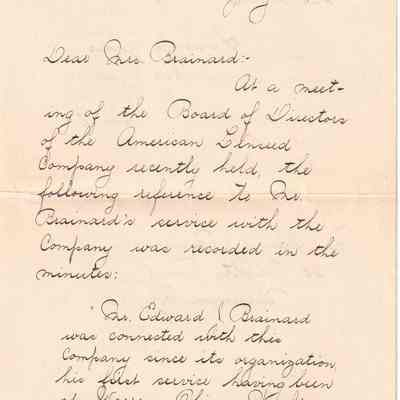 Dear Mrs. Brainard:-
At a meet-
ing of the Board of Directors
of the American Linseed
Company recently held, the
following reference to Mr.
Brainard's service with the
Company was recorded in the
minutes:
"Mr. Edward Brainard
was connected with this
Company since its organization,
his first service having been
at Ohio